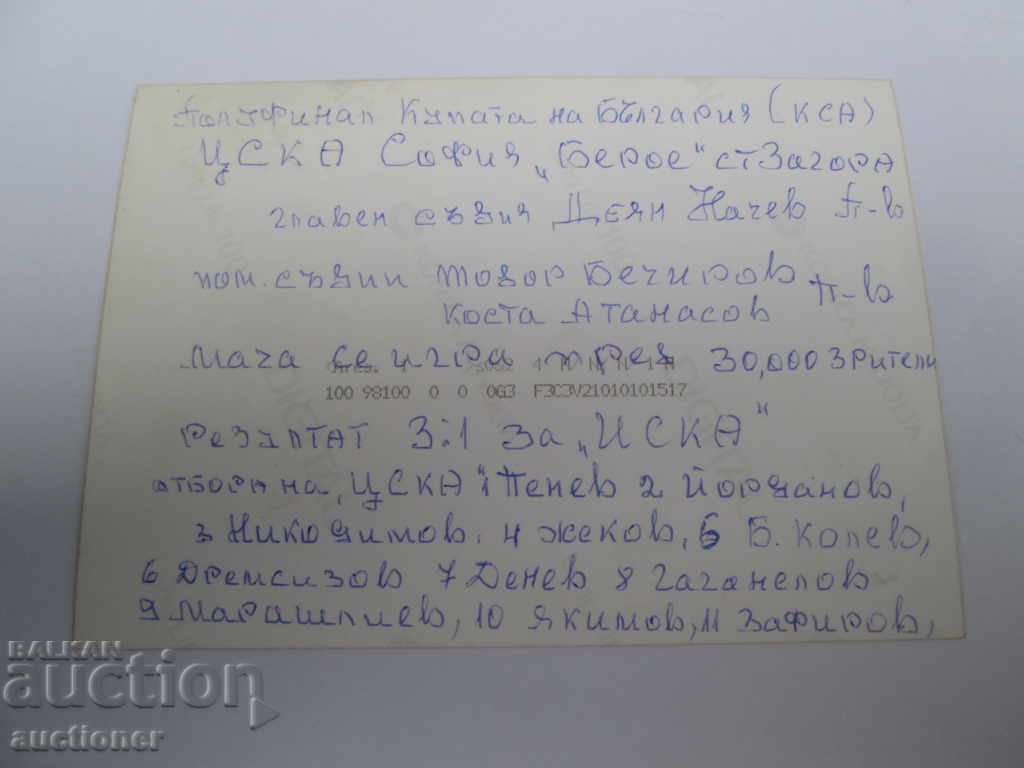 Полуфинал Купата на България (КСА)
ЦСКА София „Берое" ст Загора
главен съдия Деян Начев П-в
пом. съдии Тодор Бечиров П-в
Коста Атанасов
Мача се игра пред 30,000 Зрители
100 98100 0 0 0G3 F3C3V21010101517
Резултат 3:1 За „ЦСКА"
отбора на „ЦСКА" 1 Пенев 2 Йорданов,
3 Никодимов. 4 Жеков, 5 Б. Колев,
6 Дремсизов 7 Денев 8 Гаганелов
9 Марашлиев, 10 Якимов, 11 Зафиров,
BALKAN
auction
auctioner